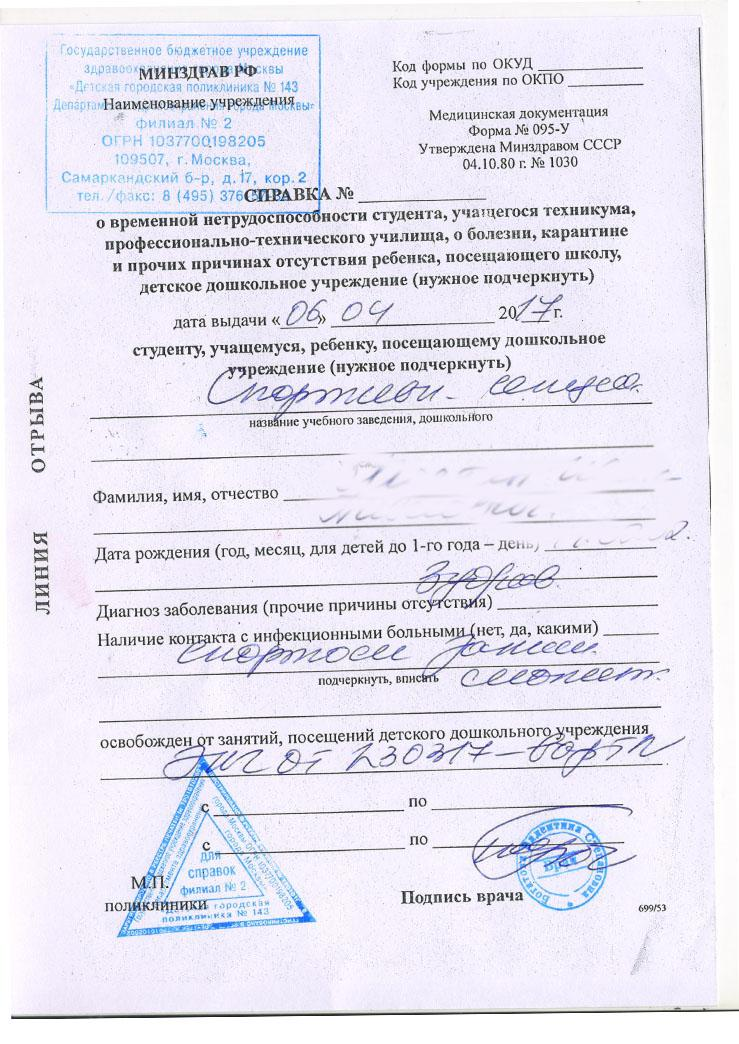 Государственное бюджетное учреждение
здравоохранения города Москвы
МИНЗДРАВ РФ
«Детская городская поликлиника № 143
Департамента здравоохранения города Москвы»
Наименование учреждения
филиал № 2
ОГРН 1037700198205
109507, г. Москва,
Самаркандский б-р, д.17, кор.2
тел./факс: 8 (495) 376
Код формы по ОКУД
Код учреждения по ОКПО
Медицинская документация
Форма № 095-У
Утверждена Минздравом СССР
04.10.80 г. № 1030
СПРАВКА №
о временной нетрудоспособности студента, учащегося техникума,
профессионально-технического училища, о болезни, карантине
и прочих причинах отсутствия ребенка, посещающего школу,
детское дошкольное учреждение (нужное подчеркнуть)
дата выдачи «06» 04 2017 г.
студенту, учащемуся, ребенку, посещающему дошкольное
учреждение (нужное подчеркнуть)
название учебного заведения, дошкольного
Фамилия, имя, отчество
Дата рождения (год, месяц, для детей до 1-го года – день)
Здоров
Диагноз заболевания (прочие причины отсутствия)
Наличие контакта с инфекционными больными (нет, да, какими)
подчеркнуть, вписать
освобожден от занятий, посещений детского дошкольного учреждения
ЭКГ от 230317
с по
с по
для
справок
филиал № 2
Детская городская
поликлиника № 143
М.П.
поликлиники
Валентина Степановна
Врач
Подпись врача
699/53
ЛИНИЯ ОТРЫВА